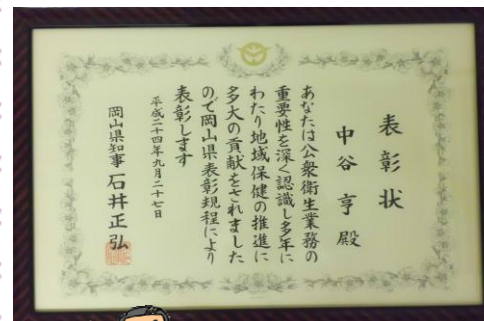 表彰状
中谷亨殿
あなたは公衆衛生業務の
重要性を深く認識し多年に
わたり地域保健の推進に
多大の貢献をされました
ので岡山県表彰規程により
表彰します
平成二十四年九月二十七日
岡山県知事 石井正弘